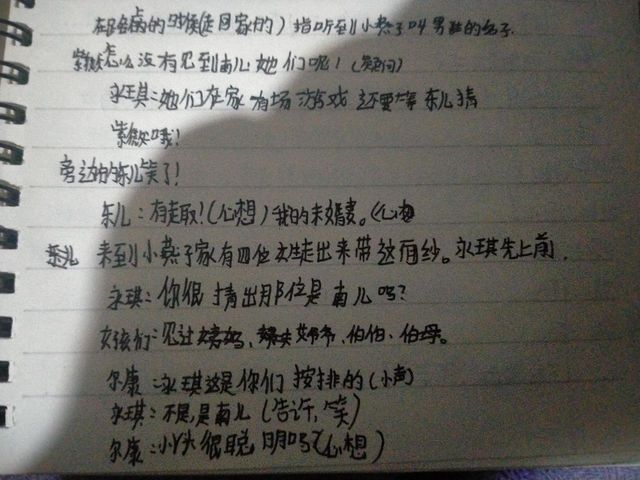 的时候(走回家的)指听到小燕子叫男鞋的名子.
紫薇:怎么没有见到南儿她们呢!(疑问)
永琪:她们在家有场游戏 还要等东儿猜
紫薇:哦!
旁边的东儿笑了!
东儿:有趣!(心想)我的未婚妻。(心想
东儿 来到小燕子家有四位女生走出来带这面纱。永琪先上前.
永琪:你很猜出那位是南儿吗?
女孩们:见过 爷爷、伯伯、伯母。
尔康:永琪这是你们按排的(小声)
永琪:不是,是南儿(告许,笑)
尔康:小丫头很聪明吗?(心想)